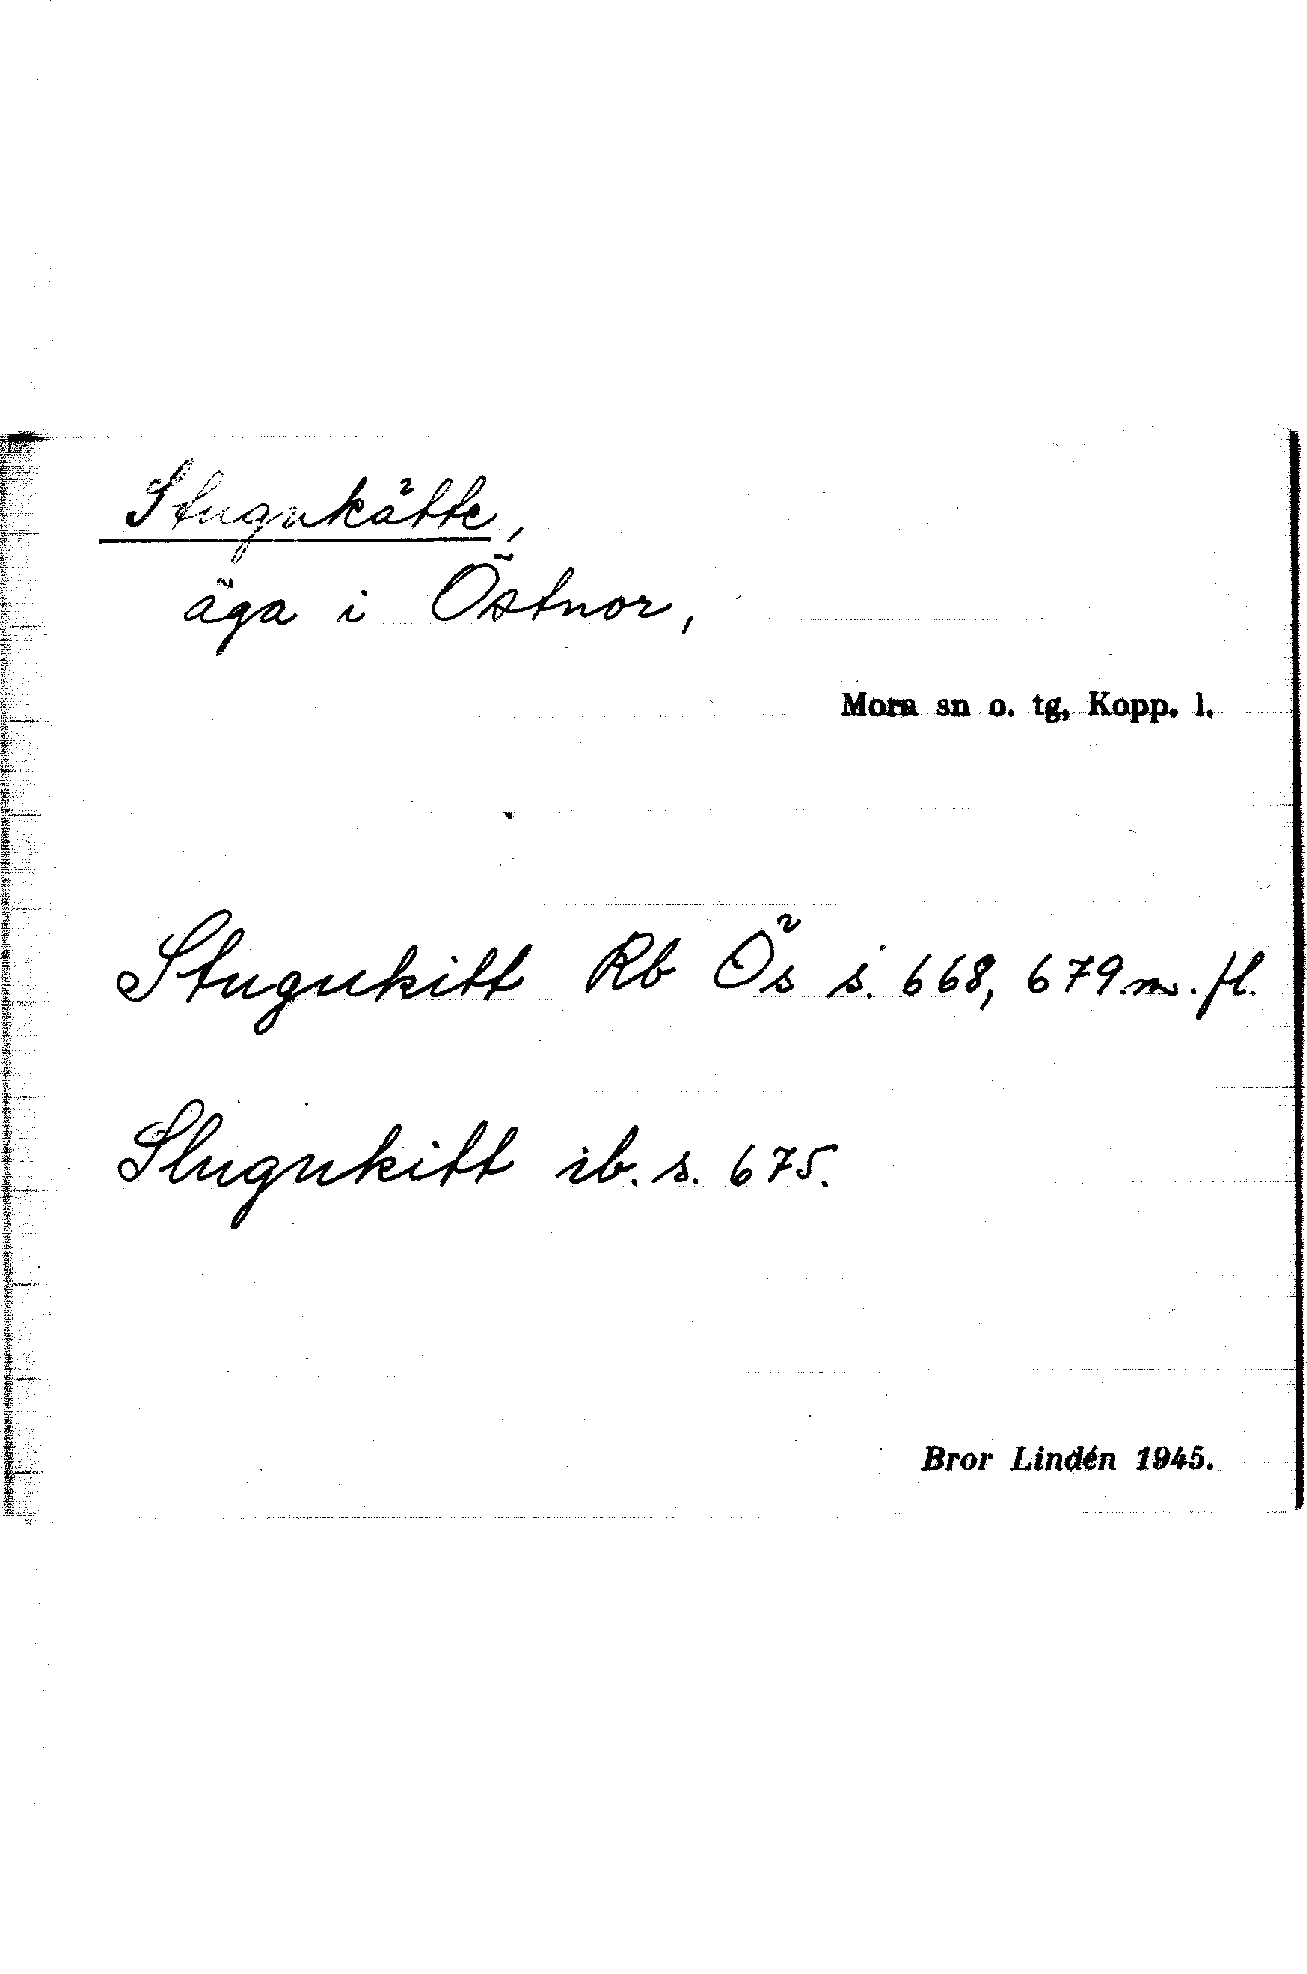 Stugukätte,
äga i Östnor,
Mora sn o. tg, Kopp. l.
Stugukitt Rb Ös s. 668, 679 m. fl.
Slugukitt ib. s. 675.
Bror Lindén 1945.